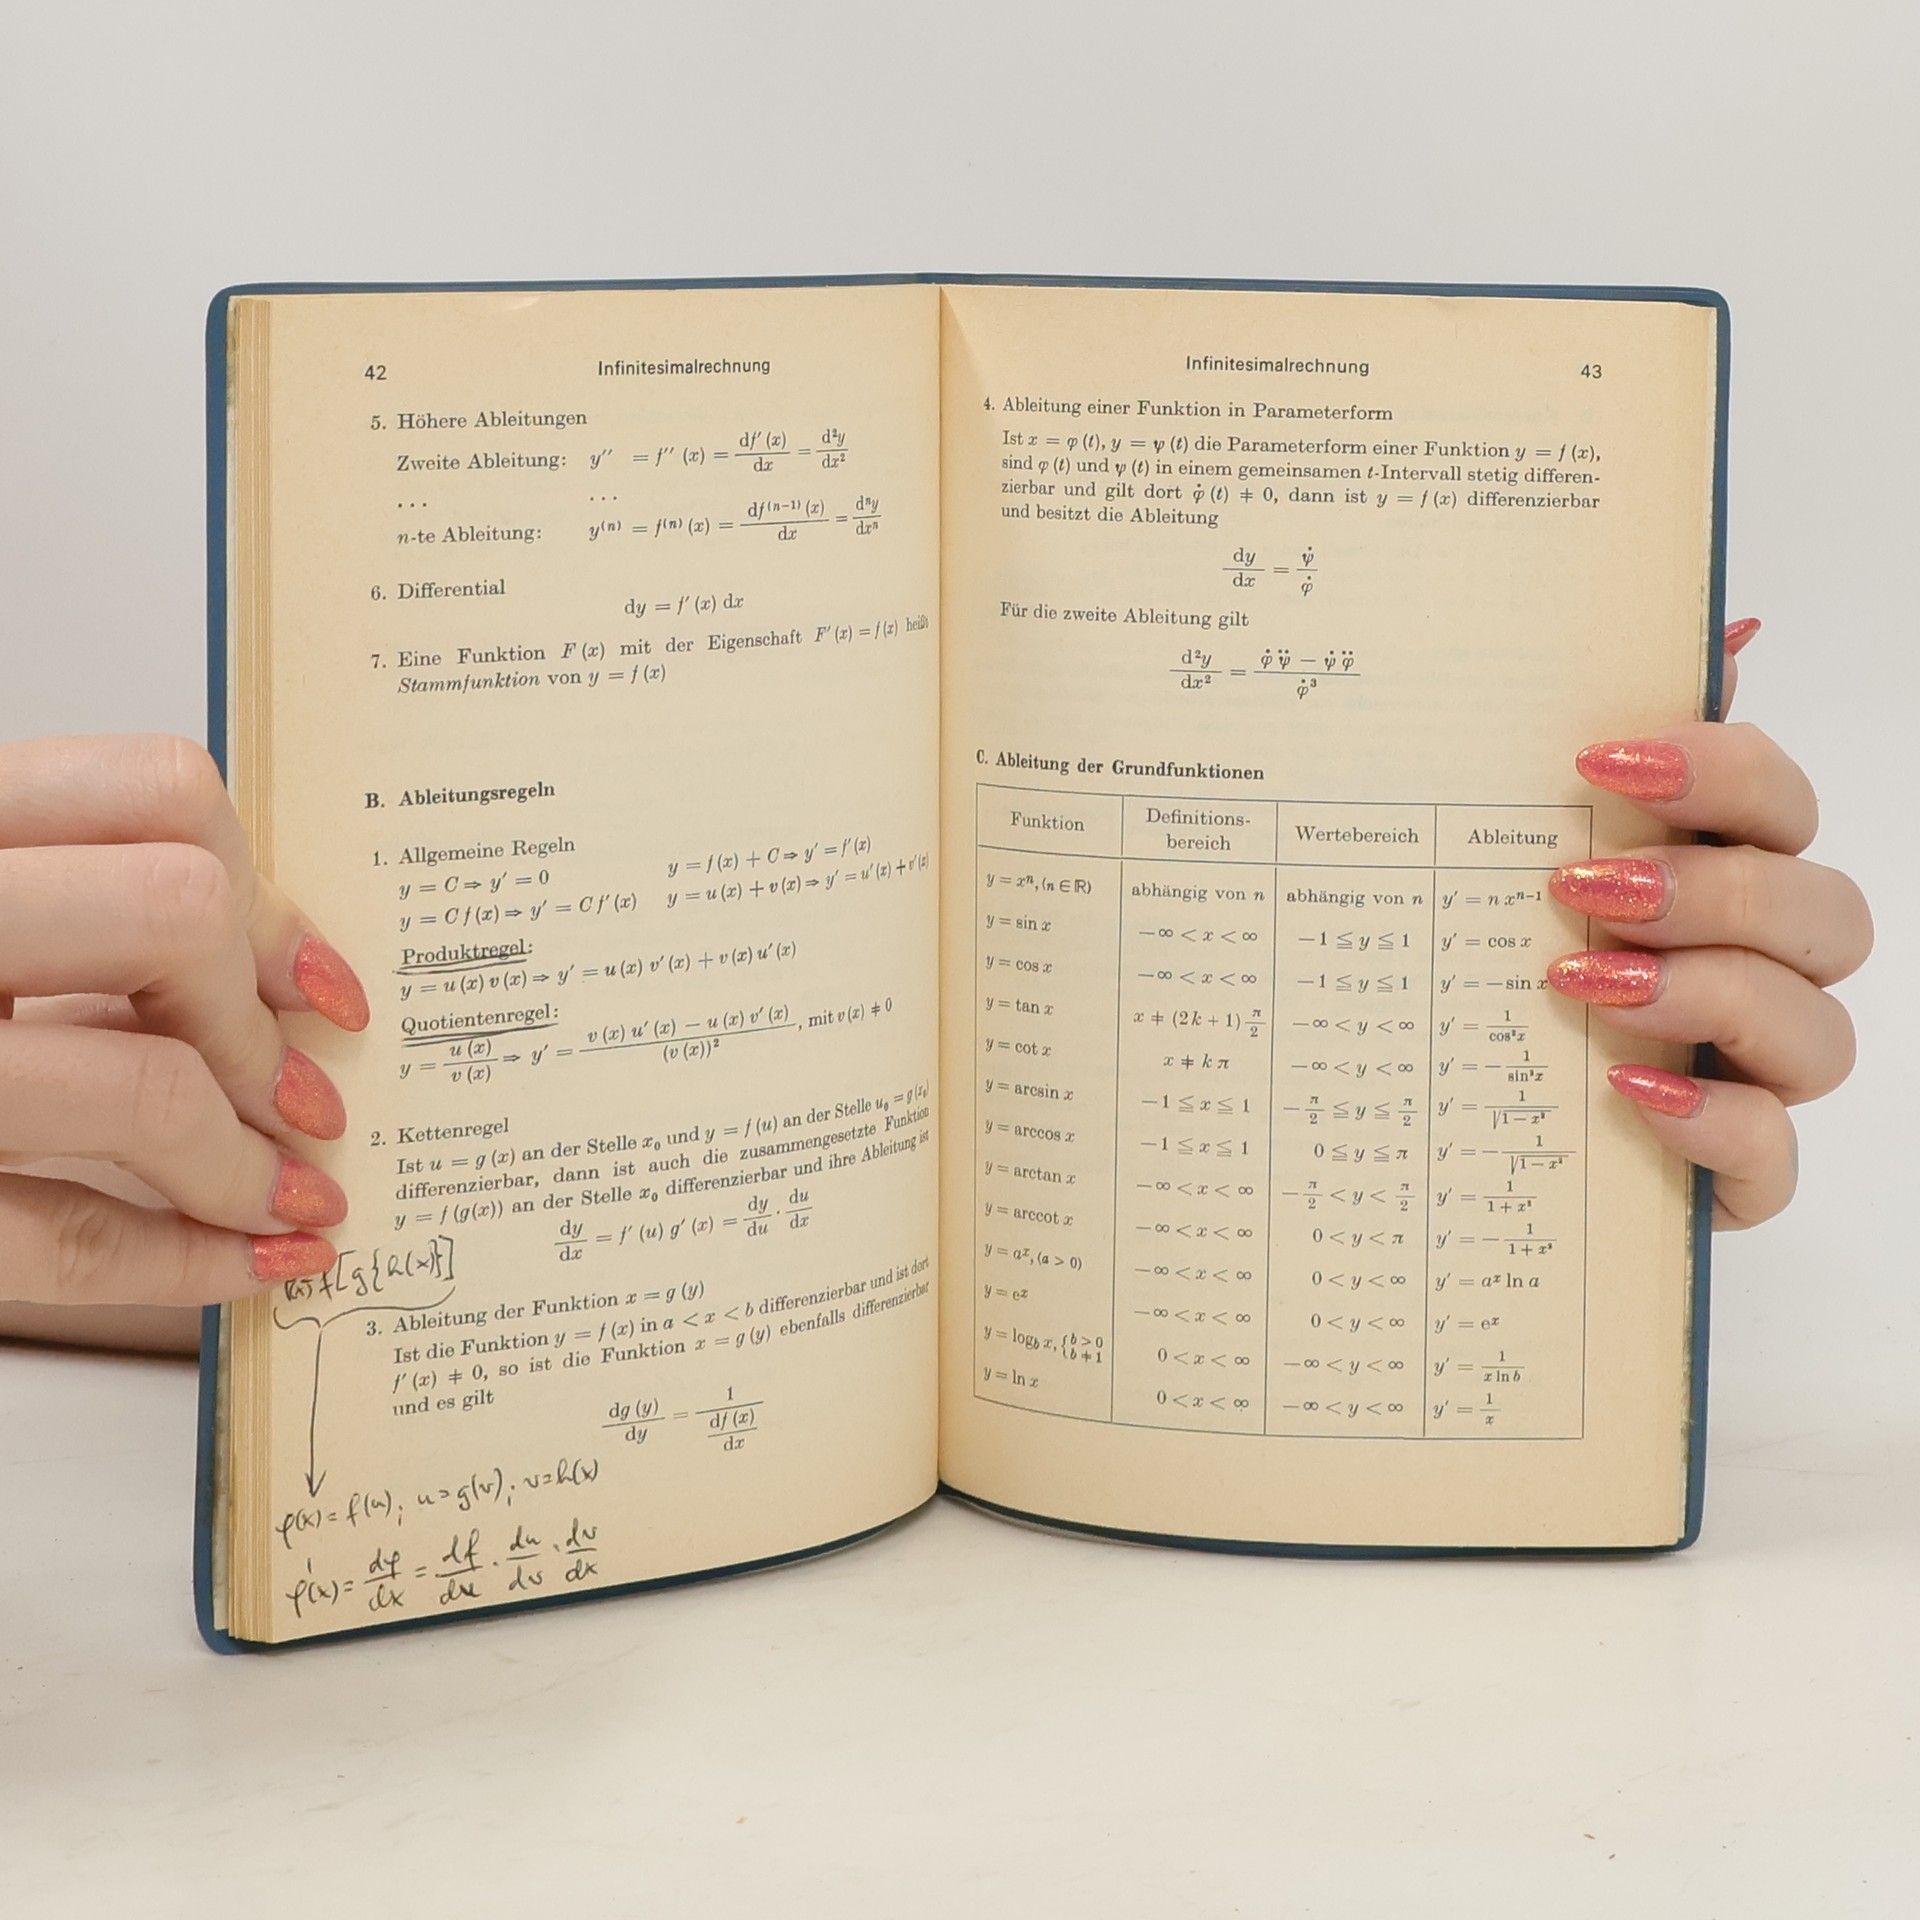 42 Infinitesimalrechnung
5. Höhere Ableitungen
Zweite Ableitung: y′′ = f′′ (x) = df′ (x)/dx = d²y/dx²
... ...
n-te Ableitung: y⁽ⁿ⁾ = f⁽ⁿ⁾ (x) = df⁽ⁿ⁻¹⁾ (x)/dx = dⁿy/dxⁿ
6. Differential
dy = f′ (x) dx
7. Eine Funktion F (x) mit der Eigenschaft F′ (x) = f (x) heißt
Stammfunktion von y = f (x)
B. Ableitungsregeln
1. Allgemeine Regeln
y = C ⇒ y′ = 0 y = f (x) + C ⇒ y′ = f′ (x)
y = C f (x) ⇒ y′ = C f′ (x) y = u (x) + v (x) ⇒ y′ = u′ (x) + v′ (x)
Produktregel:
y = u (x) v (x) ⇒ y′ = u (x) v′ (x) + v (x) u′ (x)
Quotientenregel:
y = u (x)/v (x) ⇒ y′ = v (x) u′ (x) − u (x) v′ (x)/(v (x))², mit v (x) ≠ 0
2. Kettenregel
Ist u = g (x) an der Stelle x₀ und y = f (u) an der Stelle u₀ = g (x₀)
differenzierbar, dann ist auch die zusammengesetzte Funktion
y = f (g(x)) an der Stelle x₀ differenzierbar und ihre Ableitung ist
dy/dx = f′ (u) g′ (x) = dy/du · du/dx
f[g{h(x)}]
3. Ableitung der Funktion x = g (y)
Ist die Funktion y = f (x) in a < x < b differenzierbar und ist dort
f′ (x) ≠ 0, so ist die Funktion x = g (y) ebenfalls differenzierbar
und es gilt
dg (y)/dy = 1/(df (x)/dx)
φ(x) = f(u); u = g(v); v = h(x)
φ′(x) = dφ/dx = df/du · du/dv · dv/dx
Infinitesimalrechnung 43
4. Ableitung einer Funktion in Parameterform
Ist x = φ (t), y = ψ (t) die Parameterform einer Funktion y = f (x),
sind φ (t) und ψ (t) in einem gemeinsamen t-Intervall stetig differen-
zierbar und gilt dort φ̇ (t) ≠ 0, dann ist y = f (x) differenzierbar
und besitzt die Ableitung
dy/dx = ψ̇/φ̇
Für die zweite Ableitung gilt
d²y/dx² = φ̇ ψ̈ − ψ̇ φ̈/φ̇³
C. Ableitung der Grundfunktionen
Funktion Definitions-bereich Wertebereich Ableitung
y = xⁿ, (n ∈ ℝ) abhängig von n abhängig von n y′ = n xⁿ⁻¹
y = sin x −∞ < x < ∞ −1 ≦ y ≦ 1 y′ = cos x
y = cos x −∞ < x < ∞ −1 ≦ y ≦ 1 y′ = −sin x
y = tan x x ≠ (2k + 1) π/2 −∞ < y < ∞ y′ = 1/cos²x
y = cot x x ≠ k π −∞ < y < ∞ y′ = −1/sin²x
y = arcsin x −1 ≦ x ≦ 1 −π/2 ≦ y ≦ π/2 y′ = 1/√(1 − x²)
y = arccos x −1 ≦ x ≦ 1 0 ≦ y ≦ π y′ = −1/√(1 − x²)
y = arctan x −∞ < x < ∞ −π/2 < y < π/2 y′ = 1/(1 + x²)
y = arccot x −∞ < x < ∞ 0 < y < π y′ = −1/(1 + x²)
y = aˣ, (a > 0) −∞ < x < ∞ 0 < y < ∞ y′ = aˣ ln a
y = eˣ −∞ < x < ∞ 0 < y < ∞ y′ = eˣ
y = log_b x, {b > 0 b ≠ 1 0 < x < ∞ −∞ < y < ∞ y′ = 1/(x ln b)
y = ln x 0 < x < ∞ −∞ < y < ∞ y′ = 1/x